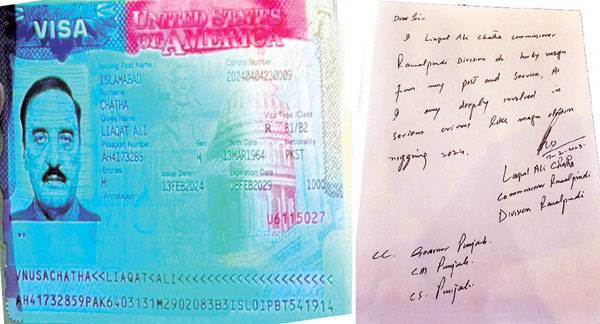 VISA
UNITED STATES
OF AMERICA
Issuing Post Name
ISLAMABAD
Control Number
20240404230009
Surname
CHATHA
Given Name
LIAQAT ALI
Visa Type /Class
R B1/B2
Passport Number
AH4173285
Sex
M
Birth Date
13MAR1964
Nationality
PKST
Entries
M
Issue Date
13FEB2024
Expiration Date
08FEB2029
1000
Annotation
U6115027
VNUSACHATHA<<LIAQAT<ALI<<<<<<<<<<<<<<<<<
AH41732859PAK6403131M2902083B3ISL0IPBT541914
Dear Sir
I Liaqat Ali Chatha commissioner
Rawalpindi Division do herby resign
from my post and Service. As
I any deeply involved in
serious crimes like major election
rigging 2024.
Liaqat Ali Chatha
Commissioner Rawalpindi
Division Rawalpindi
CC. Governor Punjab.
CM Punjab.
CS. Punjab.